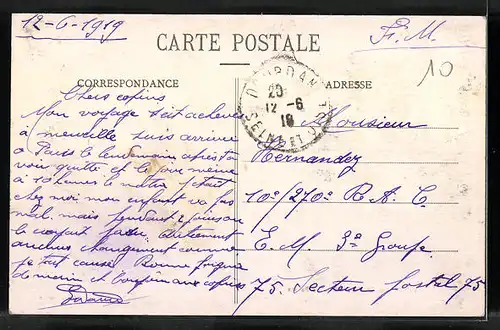 12-6-1919
F. M.
CARTE POSTALE
10
CORRESPONDANCE
ADRESSE
DOURDAN
20
12 -6
19
SEINE ET OISE
Chers copins
Mon voyage s'est acheve
a merveille suis arrive
a Paris le lendemain apres
voir quitte et le jour meme
a 10 heures le matin j'etais
chez moi mon enfant va pas
mal, mais pendant
le autrement
aucun changement comme
je tout cause Bonne
de main et aux copins
Monsieur
Hernandez
10e/270e R. A. C.
E. M. 3e Groupe
75. Secteur postal 75.